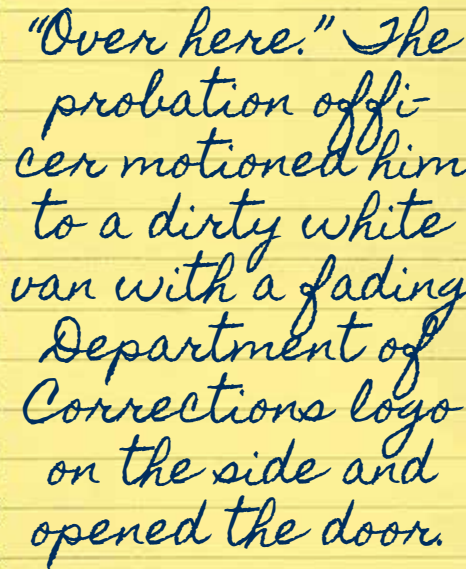 “Over here.” The
probation offi-
cer motioned him
to a dirty white
van with a fading
Department of
Corrections logo
on the side and
opened the door.